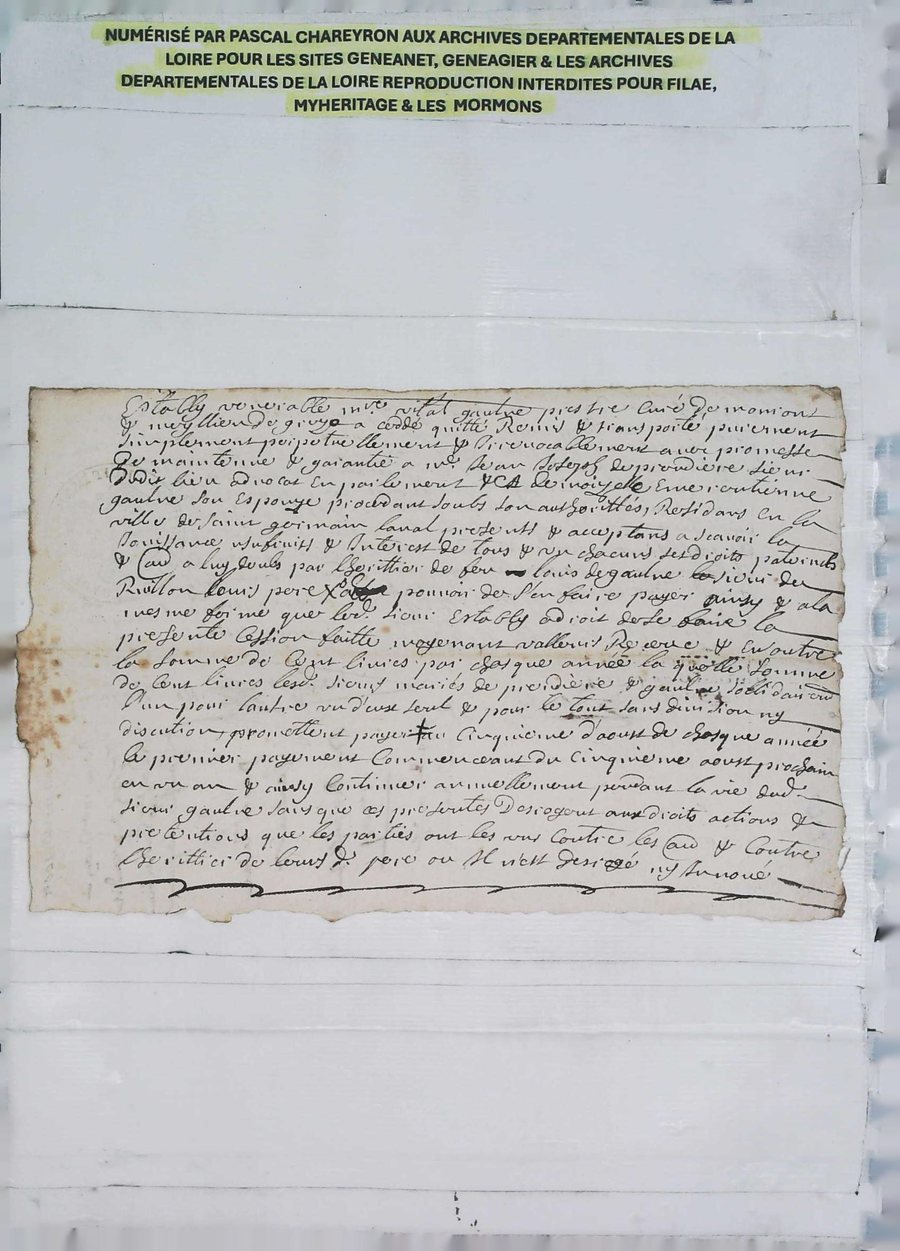 NUMÉRISÉ PAR PASCAL CHAREYRON AUX ARCHIVES DEPARTEMENTALES DE LA
LOIRE POUR LES SITES GENEANET, GENEAGIER & LES ARCHIVES
DEPARTEMENTALES DE LA LOIRE REPRODUCTION INTERDITES POUR FILAE,
MYHERITAGE & LES MORMONS
Establly venerable mre vital gaulne prestre Curé De
& a cedde quitté Remis & transporté purement
simplement perpetuellement & Irrevocablement avec promesse
De maintenir & garantie a mr Jean Joseph de premdiere sieur
dudit lieu advocat En parlement & Emerentienne
gaulne son Espouze procedant soubs son authorittés, Residans En la
ville de Saint germain laval presents & acceptans a scavoir la
Jouissance usufruits & Interest de tous & un chacuns ses droits paternels
& a luy deubs par lherittier de feu louis de gaulne sieur du
Louis pere pouvoir de s'en faire payer ainsy & a la
mesme forme que led. sieur Establly a droit de se faire la
presente Cession faitte moyenant & En outre
la somme de Cent livres par chasque année la quelle somme
de Cent livres lesd. sieurs mariés de premdiere & gaulne solidairem
l'un pour l'autre un d'eux seul & pour le tout sans division ny
discution promettent payer au Cinquieme d'aoust de chasque année
le premier payement Commenceant du Cinquieme aoust prochain
en un an & ainsy Continuer annuellement pendant la vie dud.
sieur gaulne sans que ces presentes Desrogent aux droits actions &
pretentions que les partiés ont les uns Contre les & Contre
lherittier de leurs d. pere ou Il n'est desrogé ny Innové